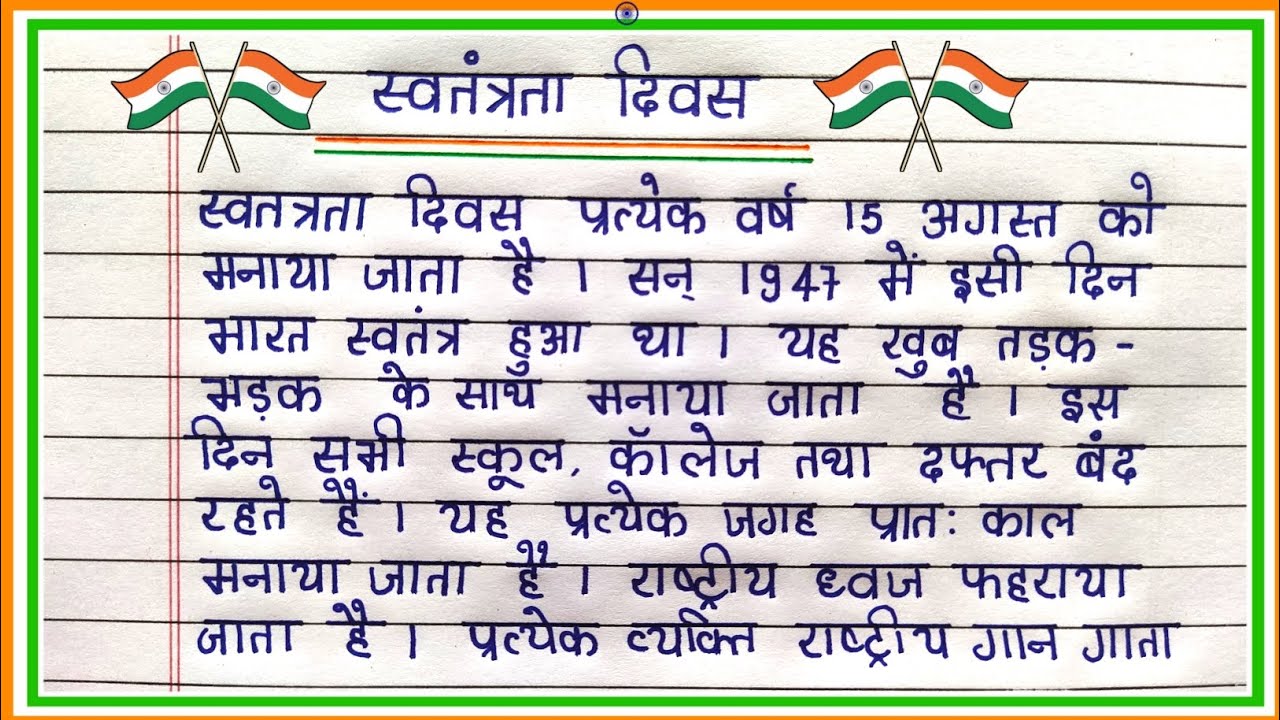 स्वतंत्रता दिवस
स्वतत्रता दिवस प्रत्येक वर्ष 15 अगस्त को
मनाया जाता है । सन् 1947 में इसी दिन
भारत स्वतंत्र हुआ था । यह खुब तड़क -
भड़क के साथ मनाया जाता है । इस
दिन सभी स्कूल, कॉलेज तथा दफ्तर बंद
रहते हैं । यह प्रत्येक जगह प्रातः काल
मनाया जाता है । राष्ट्रीय ध्वज फहराया
जाता है । प्रत्येक व्यक्ति राष्ट्रीय गान गाता